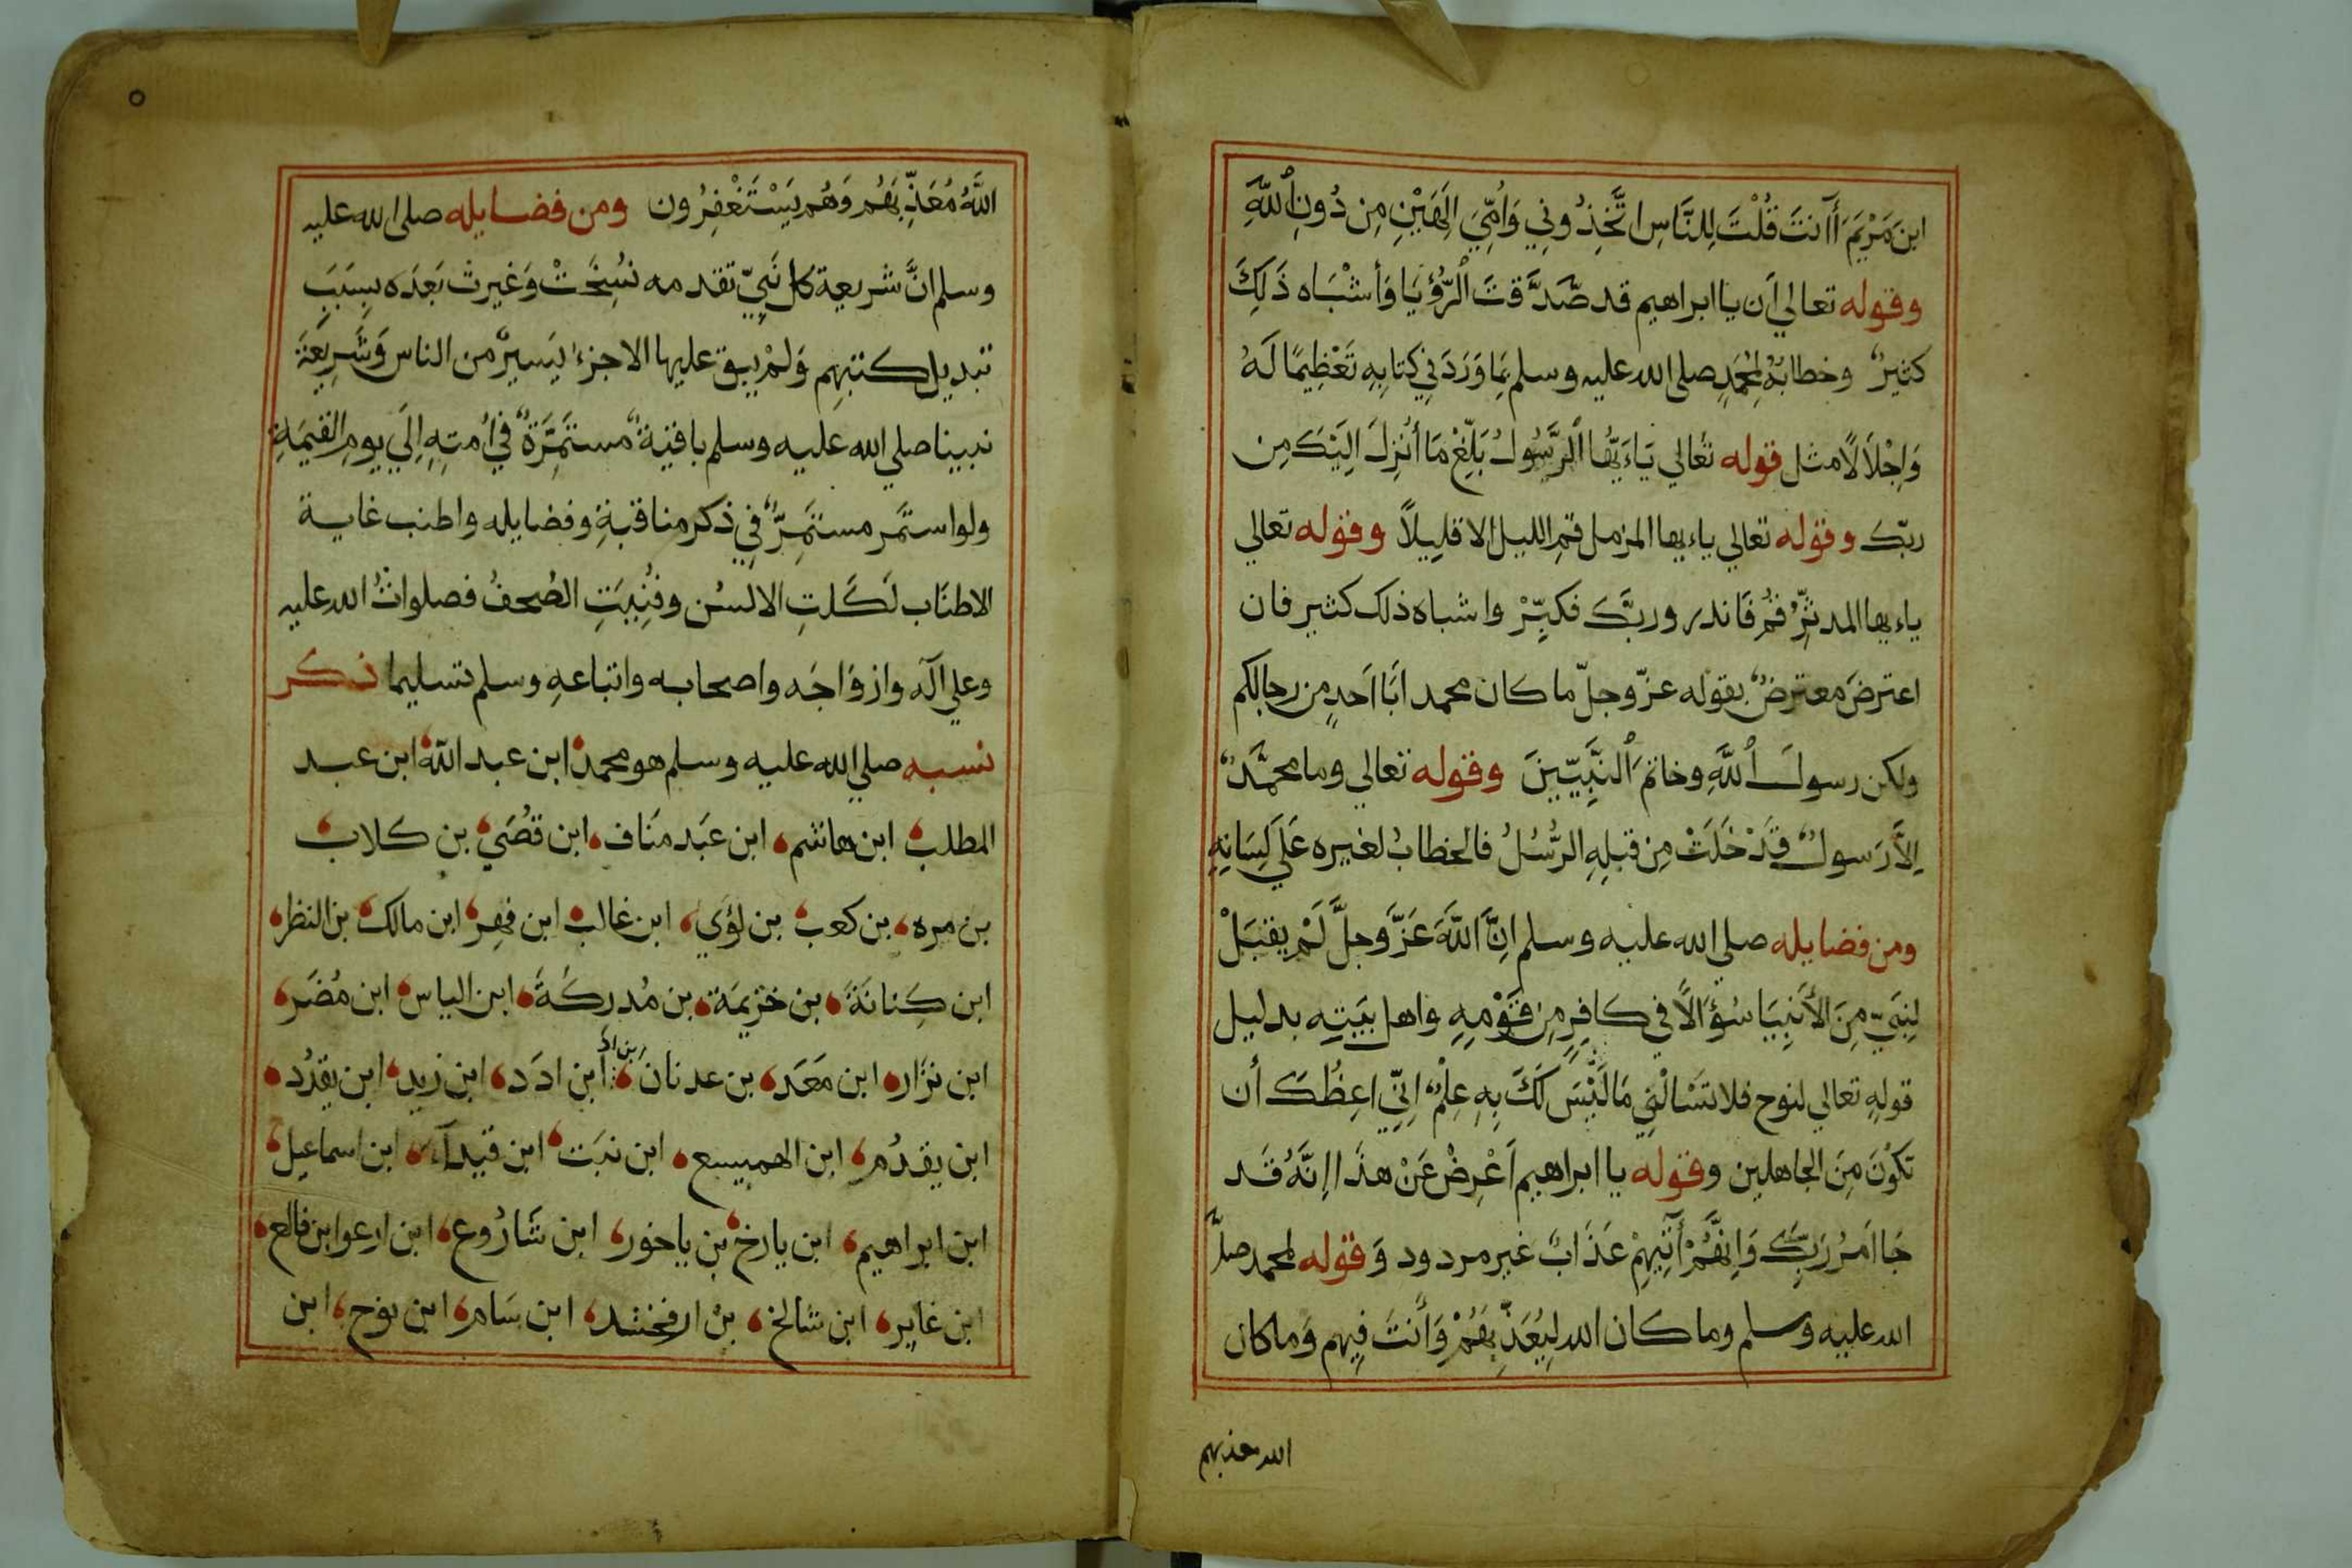 ابنَ مَرْيَمَ أَآنتَ قُلْتَ لِلنَّاسِ اتَّخِذُونِي وَاُمِّيَ اِلَهَيْنِ مِن دُونِ اُللّهِ
وقوله تعالي أن يا ابراهيم قد صَّدَّقتَ اُلرُّؤيَا وَأشْبَاه ذَلِكَ
كثيرٌ وخطابهُ لمحمدٍ صلى الله عليه وسلم بمَا وَرَدَ فِي كتابِهِ تَعْظِيمًا لَهُ
وَاِجْلَالًا مثل قوله تعَالي يَاءَيّهُا اُلرَّسُولُ بَلّغْ مَا أُنْزِلَ اِلَيْكَ مِن
ربّك وقوله تعالي ياءيها المزمل قمِ الليل الا قليلاً وقوله تعالي
ياءيها المدثّرُ قمُ فَانذر وربَّك فكبّرْ واشباه ذلك كثير فان
اعترضَ معترضٌ بقوله عزّ وجلّ ما كان محمد ابَا اَحدٍ من رجالكم
ولكن رسولَ اُللَّهِ وخاتمَ اُلنَّبِيّينَ وقوله تعالي وما محمَّدٌ
اِلاَّ رَسولٌ قَدْ خَلَتْ مِن قبلِهِ الرُّسُلُ فالخطابُ لغيره عَلَي لِسَانِهِ
ومن فضايله صلي الله عليه وسلم اِنَّ اللّهَ عَزَّ وجلَّ لَمْ يقبَلْ
لِنَبَيّ مِنَ الأَنبِيَا سُؤَالًا في كافِرٍ مِن قَوْمِهِ واهل بَيتِه بدليل
قولِهِ تعالي لنوح فلا تَسْالْنِي مَا لَيْسَ لَكَ بِهِ عِلْمٌ اِنِّي اعِظُكَ أن
تكوُنَ مِنَ الجاهلين وقوله يا ابراهيم اَعْرِضْ عَنْ هذَا اِنَّهُ قَد
جَا اَمرُ رَبِّكَ وَاِنَّهُمْ أَتِيهِمْ عَذَابٌ غير مردود وَقوله لمحمد صلَّ
الله عليه وسلم وما كان الله لِيُعَذِّبَهُمْ وَأَنتَ فِيهم وَما كان
الله معذبهم
اللَّهُ مُعَذّبَهُم وَهُم يَسْتَغْفِرُون ومن فضايله صلى الله عليه
وسلم انَّ شريعة كل نَبيّ تقدمه نُسِخَتْ وَغيرت بَعدَه بِسَبَبَ
تبديل كتبهِم وَلمْ يبق عليها الا جزءٌ يَسيرٌ من الناس وَشَرِيعَةَ
نبينا صلي الله عليه وسلم باقيةٌ مستمِرّةٌ في اُمتِهِ اِلَي يومِ القيمَةِ
ولو استمَر مستمِرٌّ فِي ذكر مناقبةِ وفضايله واطنب غاية
الاطنَاب لَكَلّتِ الالسُن وفُنِيَتِ الصُحفُ فصلواتُ الله عليه
وعلي آله وازوَاجَه واصحابه واتباعهِ وسلم تسليما ذكر
نسبه صلي الله عليه وسلم هو محمد ابن عبد اللّه ابن عبد
المطلب ابن هاشم ابن عَبَد مَناف ابن قصُيَ بن كلاب
بن مره بن كعب بن لؤَي ابن غالب ابن فهِر ابن مالك بن النظر
ابن كِنانَةَ بن خزيمَة بن مُدركَةَ ابن الياس ابن مُضَر
ابن نزَار ابن مَعَد بن عدنان بن ادَ ابن ادَد ابن زيد ابن يقدُد
ابن يقدُم ابن الهميسع ابن نبَت ابن قيدآر ابن اسماعيل
ابن ابراهيم ابن يارخ بن ياخور ابن شَارُوع ابن ارعوا بن فالع
ابن غايَر ابن شالخ بن ارفخشد ابن سَام ابن نوح ابن